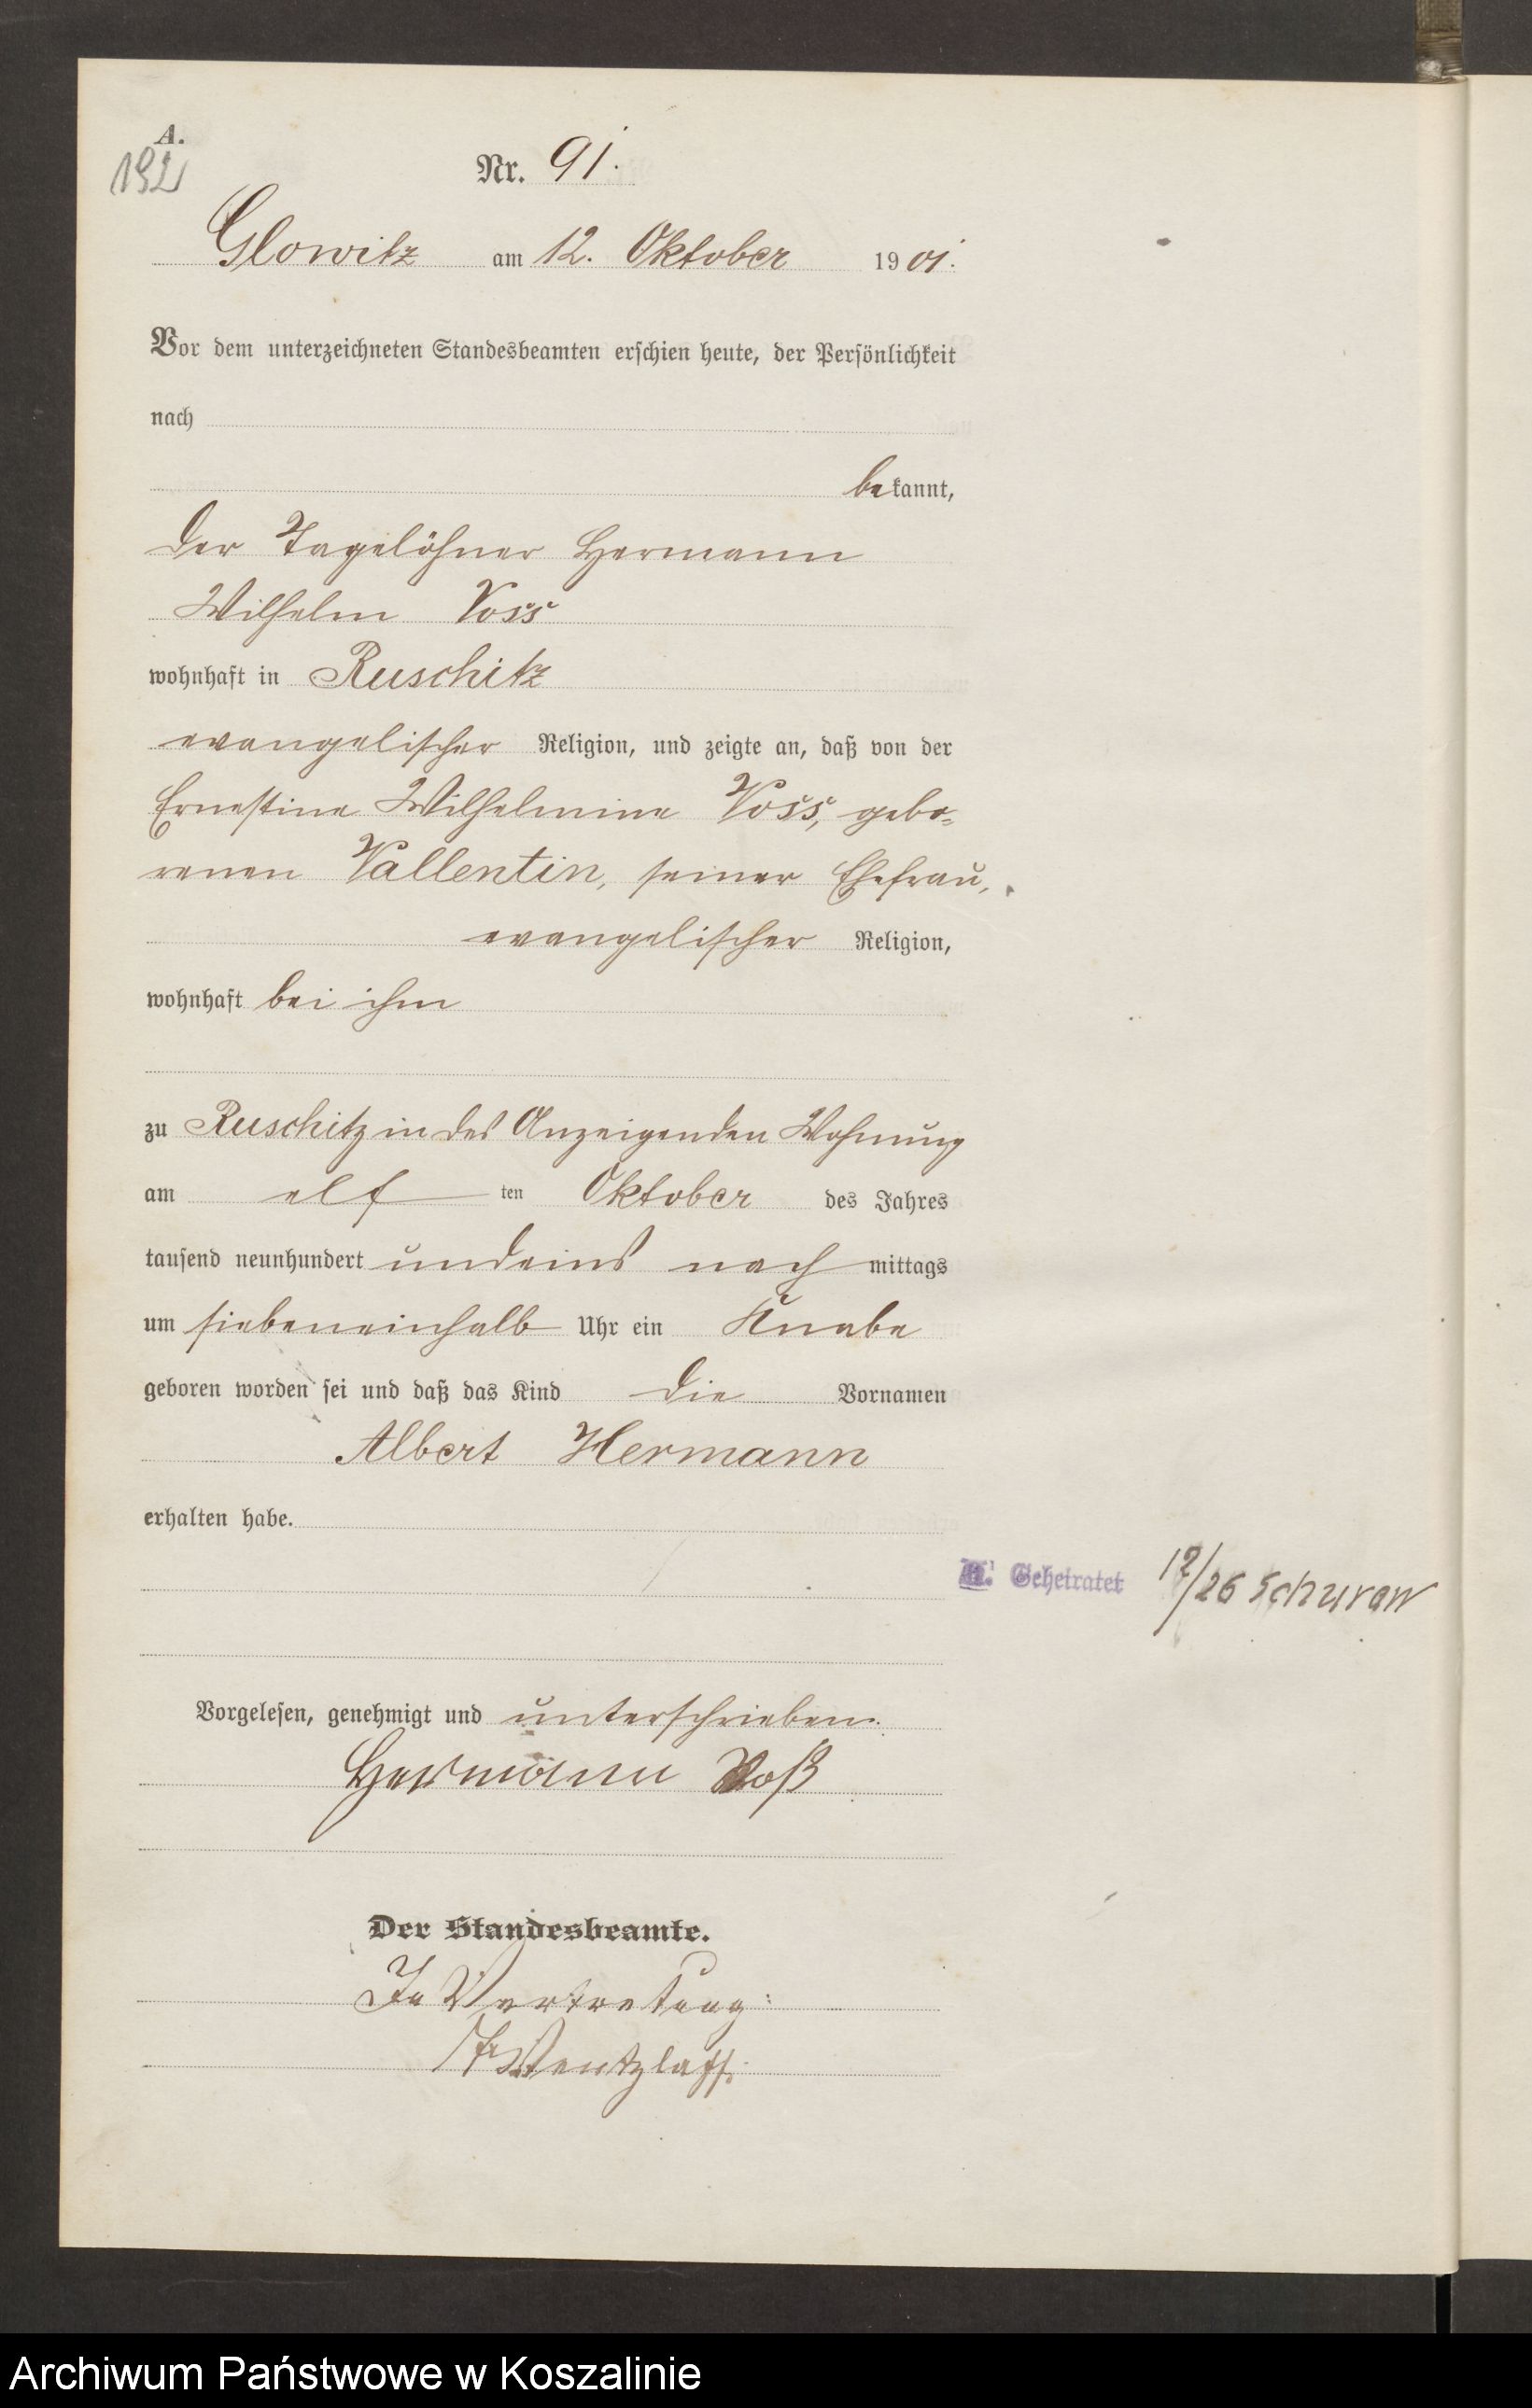 A.
192
Nr. 91.
Glowitz am 12. Oktober 1901.
Vor dem unterzeichneten Standesbeamten erschien heute, der Persönlichkeit
nach
bekannt,
der Tagelöhner Hermann
Wilhelm Voss
wohnhaft in Ruschitz
evangelischer Religion, und zeigte an, daß von der
Ernestine Wilhelmine Voss, gebo-
renen Vallentin, seiner Ehefrau,
evangelischer Religion,
wohnhaft bei ihm
zu Ruschitz in des Anzeigenden Wohnung
am elf ten Oktober des Jahres
tausend neunhundert undeins nach mittags
um siebeneinhalb Uhr ein Knabe
geboren worden sei und daß das Kind die Vornamen
Albert Hermann
erhalten habe.
Geheiratet 12/26 Schurow
Vorgelesen, genehmigt und unterschrieben.
Hermann Voß
Der Standesbeamte.
In Vertretung:
Wentzlaff.
Archiwum Państwowe w Koszalinie